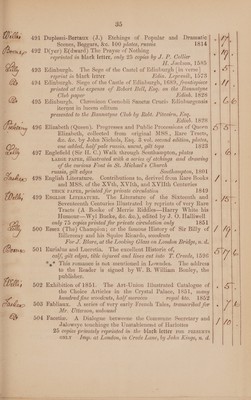 35
491 Duplessi-Bertaux (J.) Etchings of Popular and Dramatic
Scenes, Beggars, &c. 100 plates, russia 1814
492 D[yer] (Edward) The Prayse of Nothing
reprinted in black letter, only 25 copies by J. P. Collier
H. Jackson, 1585
493 Edinburgh. The Sege of the Castel of Edinburgh [in verse]
reprint in black letter Edin. Leprewik, 1573
494 Edinburgh. Siege of the Castle of Edinburgh, 1689, frontispiece
printed at the expense of Robert Bell, Esq. on the Bannatyne
Club paper Edinb. 1828
495 Edinburgh. Chronicon Cœnobii Sanctæ Crucis Edinburgensis
iterum in lucem editum
presented to the Bannatyne Club by Robt. Pitcairn, Esq.
Edinb. 1828
496 Elizabeth (Queen). Progresses and Public Processions of Queen
Elizabeth, collected from original MSS., Rare Tracts,
&c. by John Nichols, Esq. 3 vol. second edition, plates,
one added, half pale russia, uncut, gilt tops 1823
497 Englefield (Sir H. C.) Walk through Southampton, plates
LARGE PAPER, illustrated with a series of etchings and drawing
of the various Font in St. Michael's Church
russia, gilt edges Southampton, 1801
498 English Literature. Contributions to, derived from Rare Books
and MSS. of the XVth, XVIth, and XVIIth Centuries
THICK PAPER, printed for private circulation 1849
499 ENGLISH LITERATURE. The Literature of the Sixteenth and
Seventeenth Centuries Illustrated by reprints of very Rare
Tracts (A Booke of Merrie Riddles—Harry White his
Humour—Wyl Bucke, &c. &c.), edited by J. O. Halliwell
only 75 copies printed for private circulation only 1851
500 Essex (The) Champion; or the famous History of Sir Billy of
Billerecay and his Squire Ricardo, woodcuts
For J. Blare, at the Looking Glass on London Bridge, n. d.
501 Eurialus and Lucretia. The excellent Historie of,
calf, gilt edges, title injured and lines cut into T. Creede, 1596
*** This romance is not mentioned in Lowndes. The address
to the Reader is signed by W. B. William Bentley, the
publisher.
502 Exhibition of 1851. The Art-Union Illustrated Catalogue of
the Choice Articles in the Crystal Palace, 1851, many
hundred fine woodcuts, half morocco royal 4to. 1852
503 Fabliaux. A series of very early French Tales, transcribed for
Mr. Utterson, unbound
504 Facetiæ. A Dialogue betweene the Commune Secretary and
Jalowsye touchynge the Unstableness of Harlottes
25 copies privately reprinted in the black letter FOR PRESENTS
ONLY Imp. at London, in Crede Lane, by John Kinge, n. d.